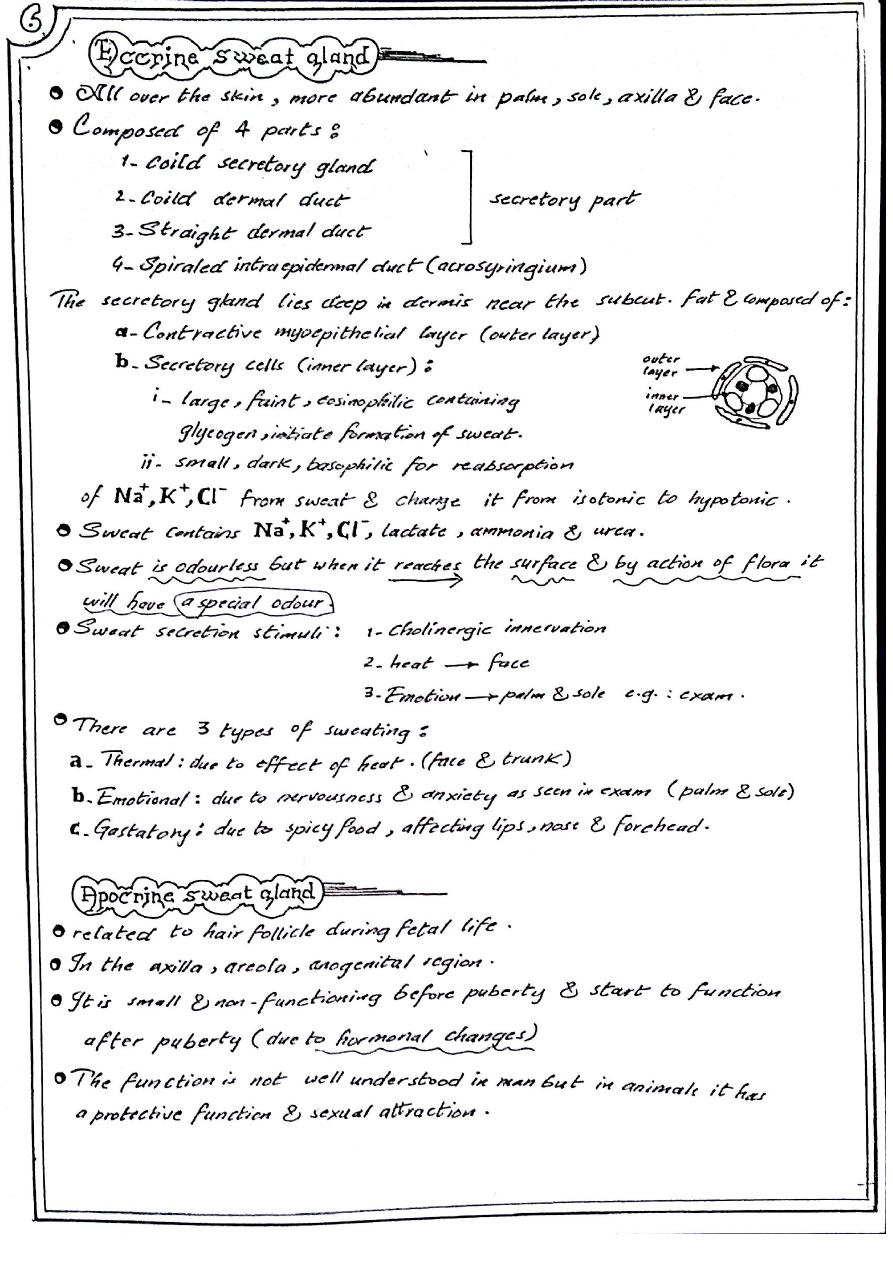 6
Eccrine sweat gland
All over the skin, more abundant in palm, sole, axilla & face.
Composed of 4 parts:
1- Coild secretory gland
2- Coild dermal duct
secretory part
3- Straight dermal duct
4- Spiraled intraepidermal duct (acrosyringium)
The secretory gland lies deep in dermis near the subcut. fat & composed of:
a- Contractive myoepithelial layer (outer layer)
b- Secretory cells (inner layer):
outer
layer
i- large, faint, eosinophilic containing
inner
layer
glycogen, initiate formation of sweat.
ii- small, dark, basophilic for reabsorption
of Na⁺, K⁺, Cl⁻ from sweat & change it from isotonic to hypotonic.
Sweat contains Na⁺, K⁺, Cl⁻, lactate, ammonia & urea.
Sweat is odourless but when it reaches the surface & by action of flora it
will have a special odour.
Sweat secretion stimuli: 1- Cholinergic innervation
2- heat → face
3- Emotion → palm & sole e.g.: exam.
There are 3 types of sweating:
a- Thermal: due to effect of heat. (face & trunk)
b. Emotional: due to nervousness & anxiety as seen in exam (palm & sole)
c- Gastatory: due to spicy food, affecting lips, nose & forehead.
Apocrine sweat gland
related to hair follicle during fetal life.
In the axilla, areola, anogenital region.
It is small & non-functioning before puberty & start to function
after puberty (due to hormonal changes)
The function is not well understood in man but in animals it has
a protective function & sexual attraction.